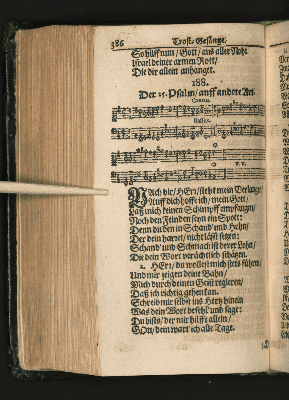 386 Trost-Gesänge.
So hilff nun / Gott / aus aller Noht
Israel deiner armen Rott /
Die dir allein anhanget.
188.
Der 25. Psalm / auff andere Art.
Cantus.
Bassus.
NAch dir / HErr / steht mein Verlangen
Auff dich hoffe ich / mein Gott /
Laß mich keinen Schimpff empfangen /
Noch den Feinden seyn ein Spott:
Denn bey dir in Schand' und Hohn /
Der dein harret / nicht läst setzen:
Schand' und Schmach ist derer Lohn /
Die dein Wort verächtlich schätzen.
2. HErr / du wollest mich stets führen /
Und mir zeigen deine Bahn /
Mich durch deinen Geist regieren /
Daß ich richtig gehen kan.
Schreib mir selbst ins Hertz hinein
Was dein Wort befehl' und sage:
Du bists / der mir hilfft allein /
GOtt / dein wart' ich alle Tage.